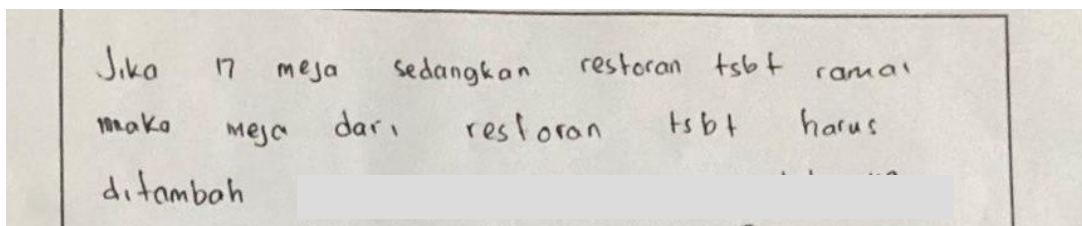 Jika 17 meja sedangkan restoran tsbt ramai
maka meja dari restoran tsbt harus
ditambah